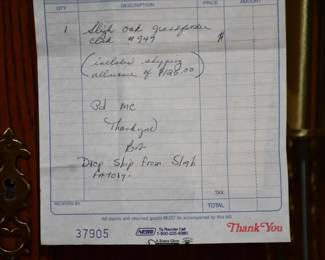 QTY. DESCRIPTION PRICE AMOUNT
1 Sligh oak grandfather
clock #949 $
(includes shipping
allowance of $125.00)
Pd MC
Thank you
Bob
Drop Ship from Sligh
factory.
TAX
RECEIVED BY TOTAL
All claims and returned goods MUST be accompanied by this bill.
37905 NEBS To Reorder Call Thank You